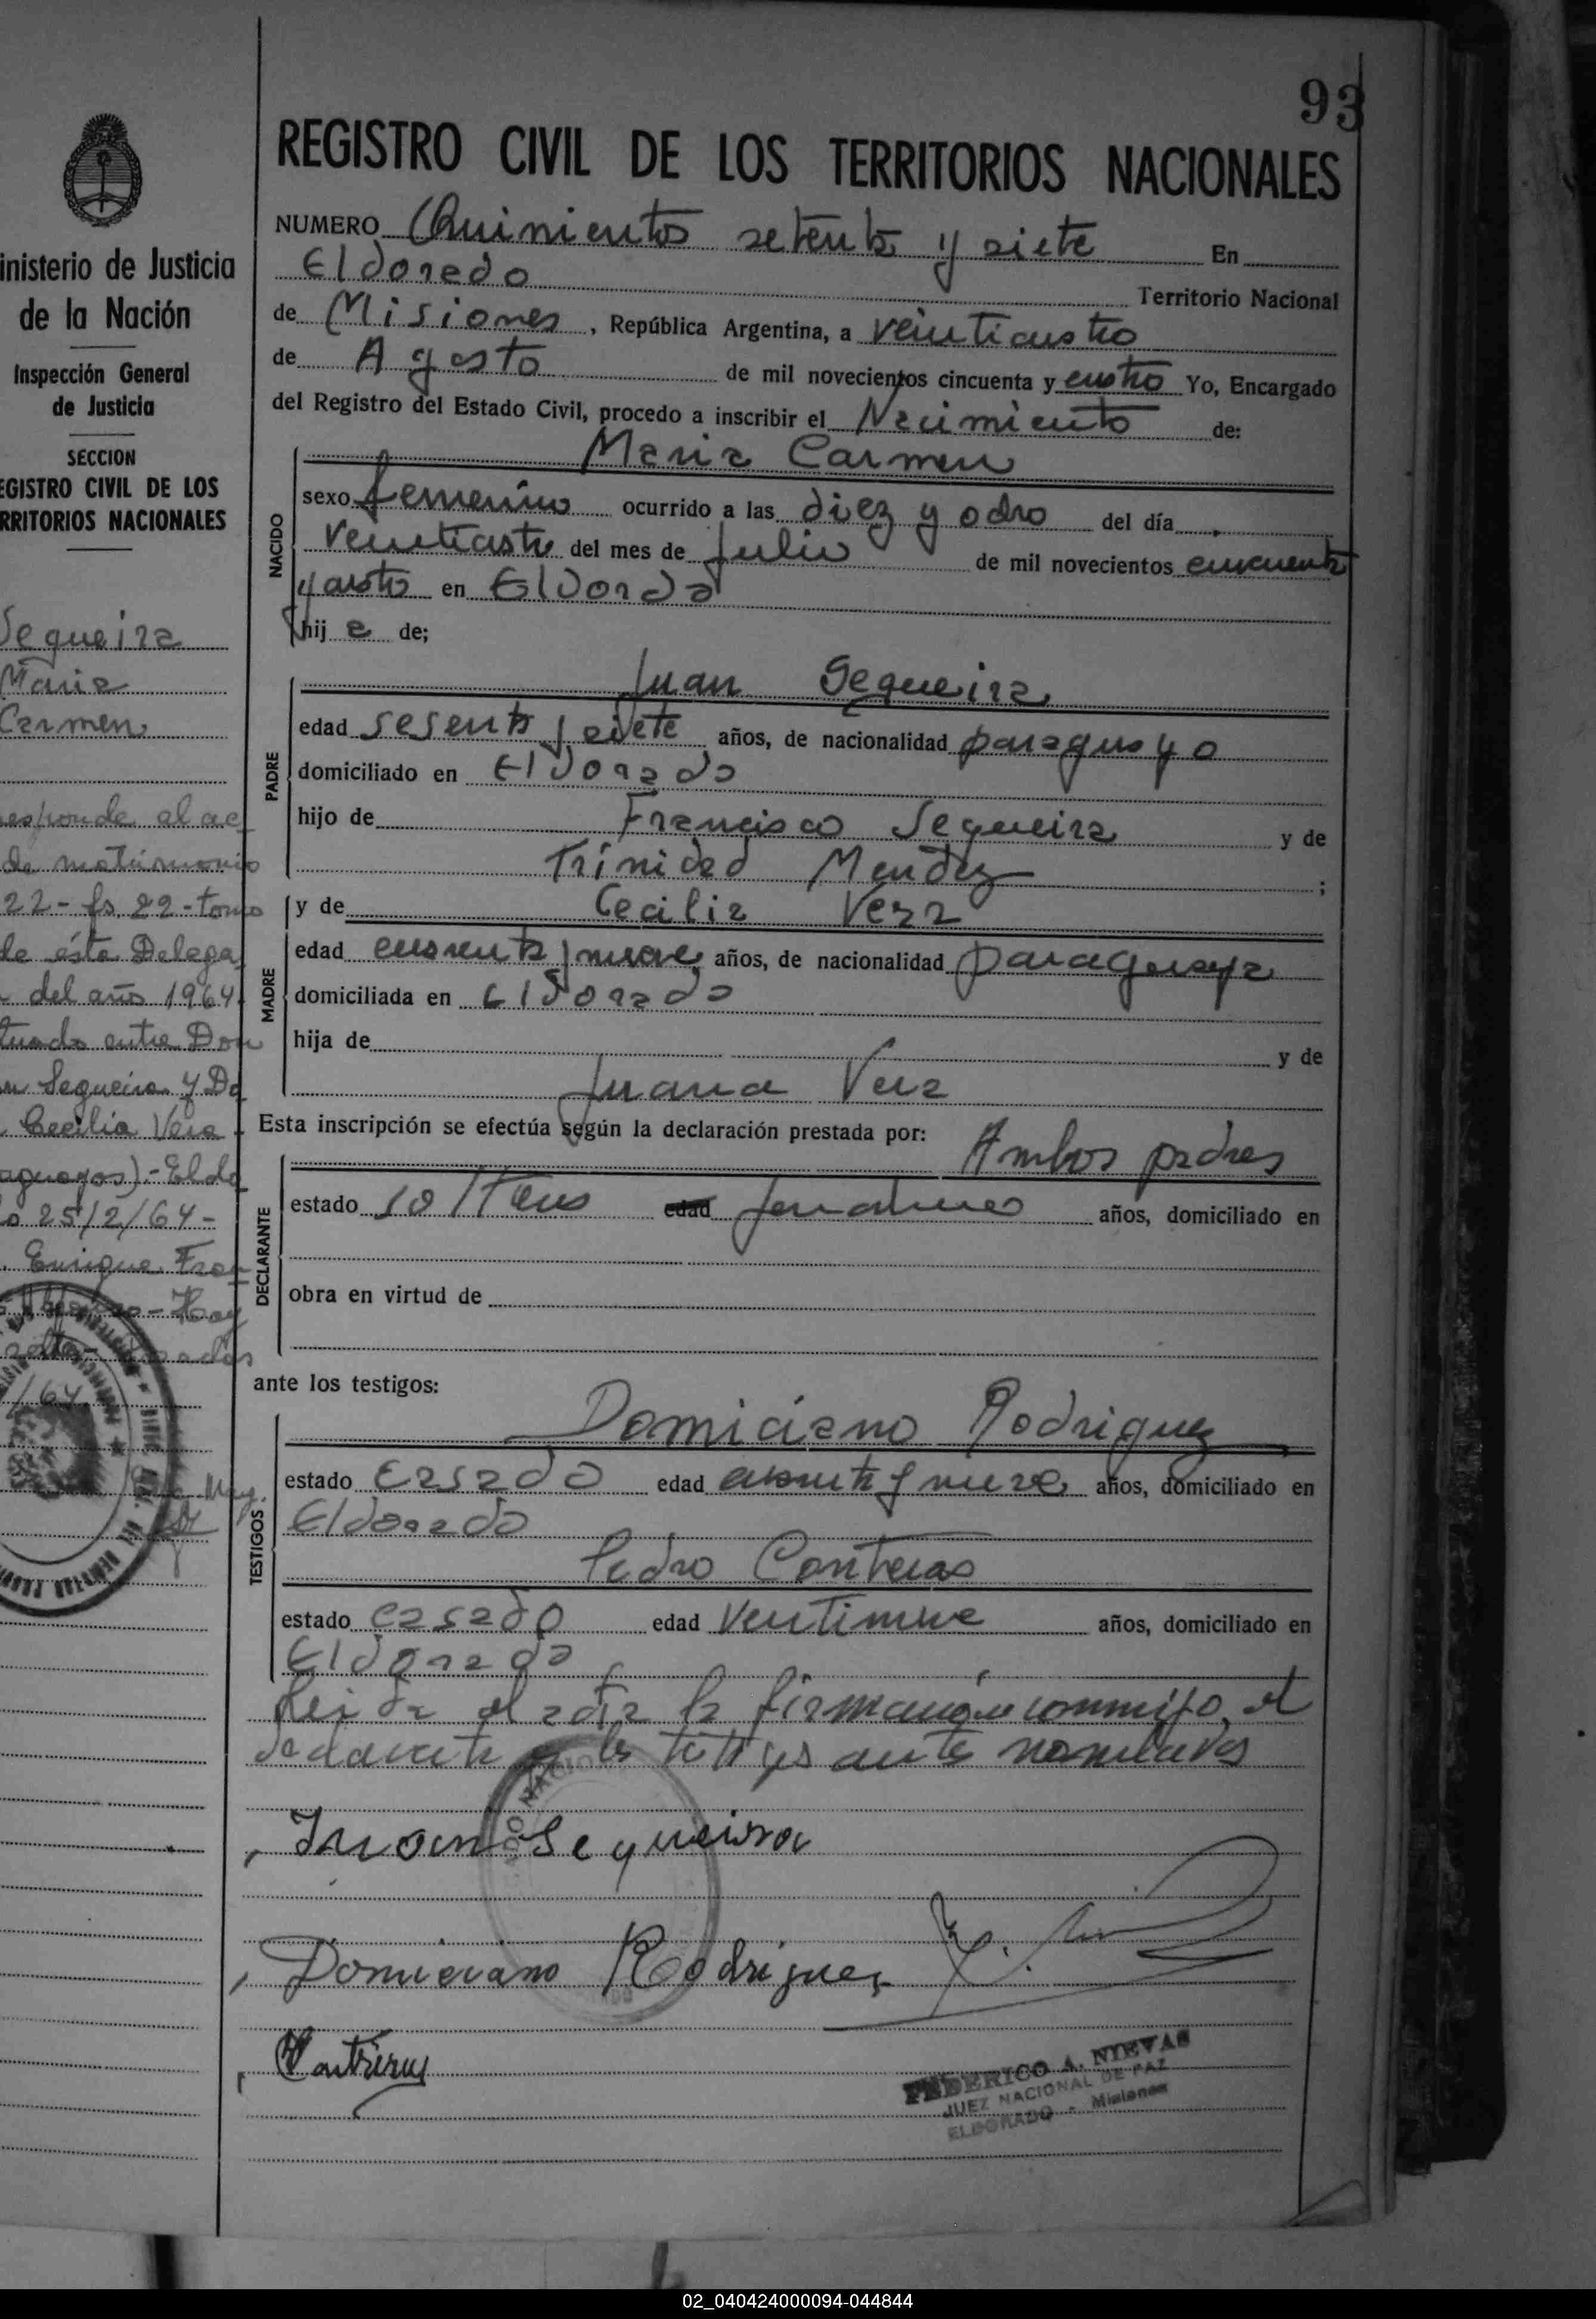 93
REGISTRO CIVIL DE LOS TERRITORIOS NACIONALES
inisterio de Justicia
de la Nación
Inspección General
de Justicia
SECCION
EGISTRO CIVIL DE LOS
RRITORIOS NACIONALES
Sequeira
Maria
Carmen
esponde al ac
de matrimonio
22 - fs. 22 - tomo
de ésta Delega
del año 1964
tuado entre Don
n Sequeira y Da
Cecilia Vera
aguayos).- Eldo
o 25/2/64 -
Enrique Fran
Hay
/64
NUMERO Quinientos setenta y siete En
Eldorado Territorio Nacional
de Misiones, República Argentina, a veinticuatro
de Agosto de mil novecientos cincuenta y cuatro Yo, Encargado
del Registro del Estado Civil, procedo a inscribir el Nacimiento de:
NACIDO
Maria Carmen
sexo femenino ocurrido a las diez y ocho del día
Veinticuatro del mes de Julio de mil novecientos cincuenta
y cuatro en Eldorado
hij a de;
PADRE
Juan Sequeira
edad sesenta y siete años, de nacionalidad paraguayo
domiciliado en Eldorado
hijo de Francisco Sequeira y de
Trinidad Mendez ;
MADRE
y de Cecilia Vera
edad cuarenta y nueve años, de nacionalidad paraguaya
domiciliada en Eldorado
hija de y de
Juana Vera
Esta inscripción se efectúa según la declaración prestada por:
DECLARANTE
Ambos padres
estado solteros edad años, domiciliado en
obra en virtud de
ante los testigos:
TESTIGOS
Domiciano Rodriguez
estado casado edad cuarenta y nueve años, domiciliado en
Eldorado
Pedro Contreras
estado casado edad Veintinueve años, domiciliado en
Eldorado
Leida el acta la firman conmigo, el
declarante y los testigos ante nombrados
Juan Sequeira
Domiciano Rodriguez
Contreras
FEDERICO A. NIEVAS
JUEZ NACIONAL DE PAZ
ELDORADO - Misiones
02_040424000094-044844